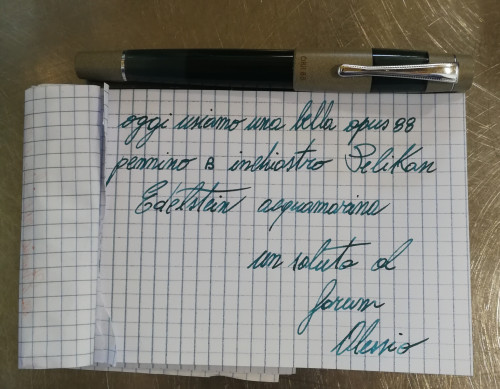 oggi usiamo una bella opus 88
pennino B inchiostro Pelikan
Edelstein acquamarina
un saluto al
forum
Alessio